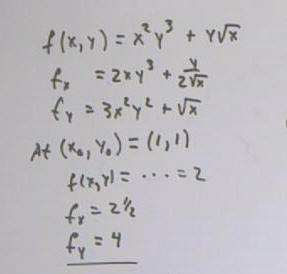 f(x,y) = x²y³ + y√x
fₓ = 2xy³ + y/2√x
f_y = 3x²y² + √x
At (x₀, y₀) = (1,1)
f(x,y) = ... = 2
fₓ = 2½
f_y = 4